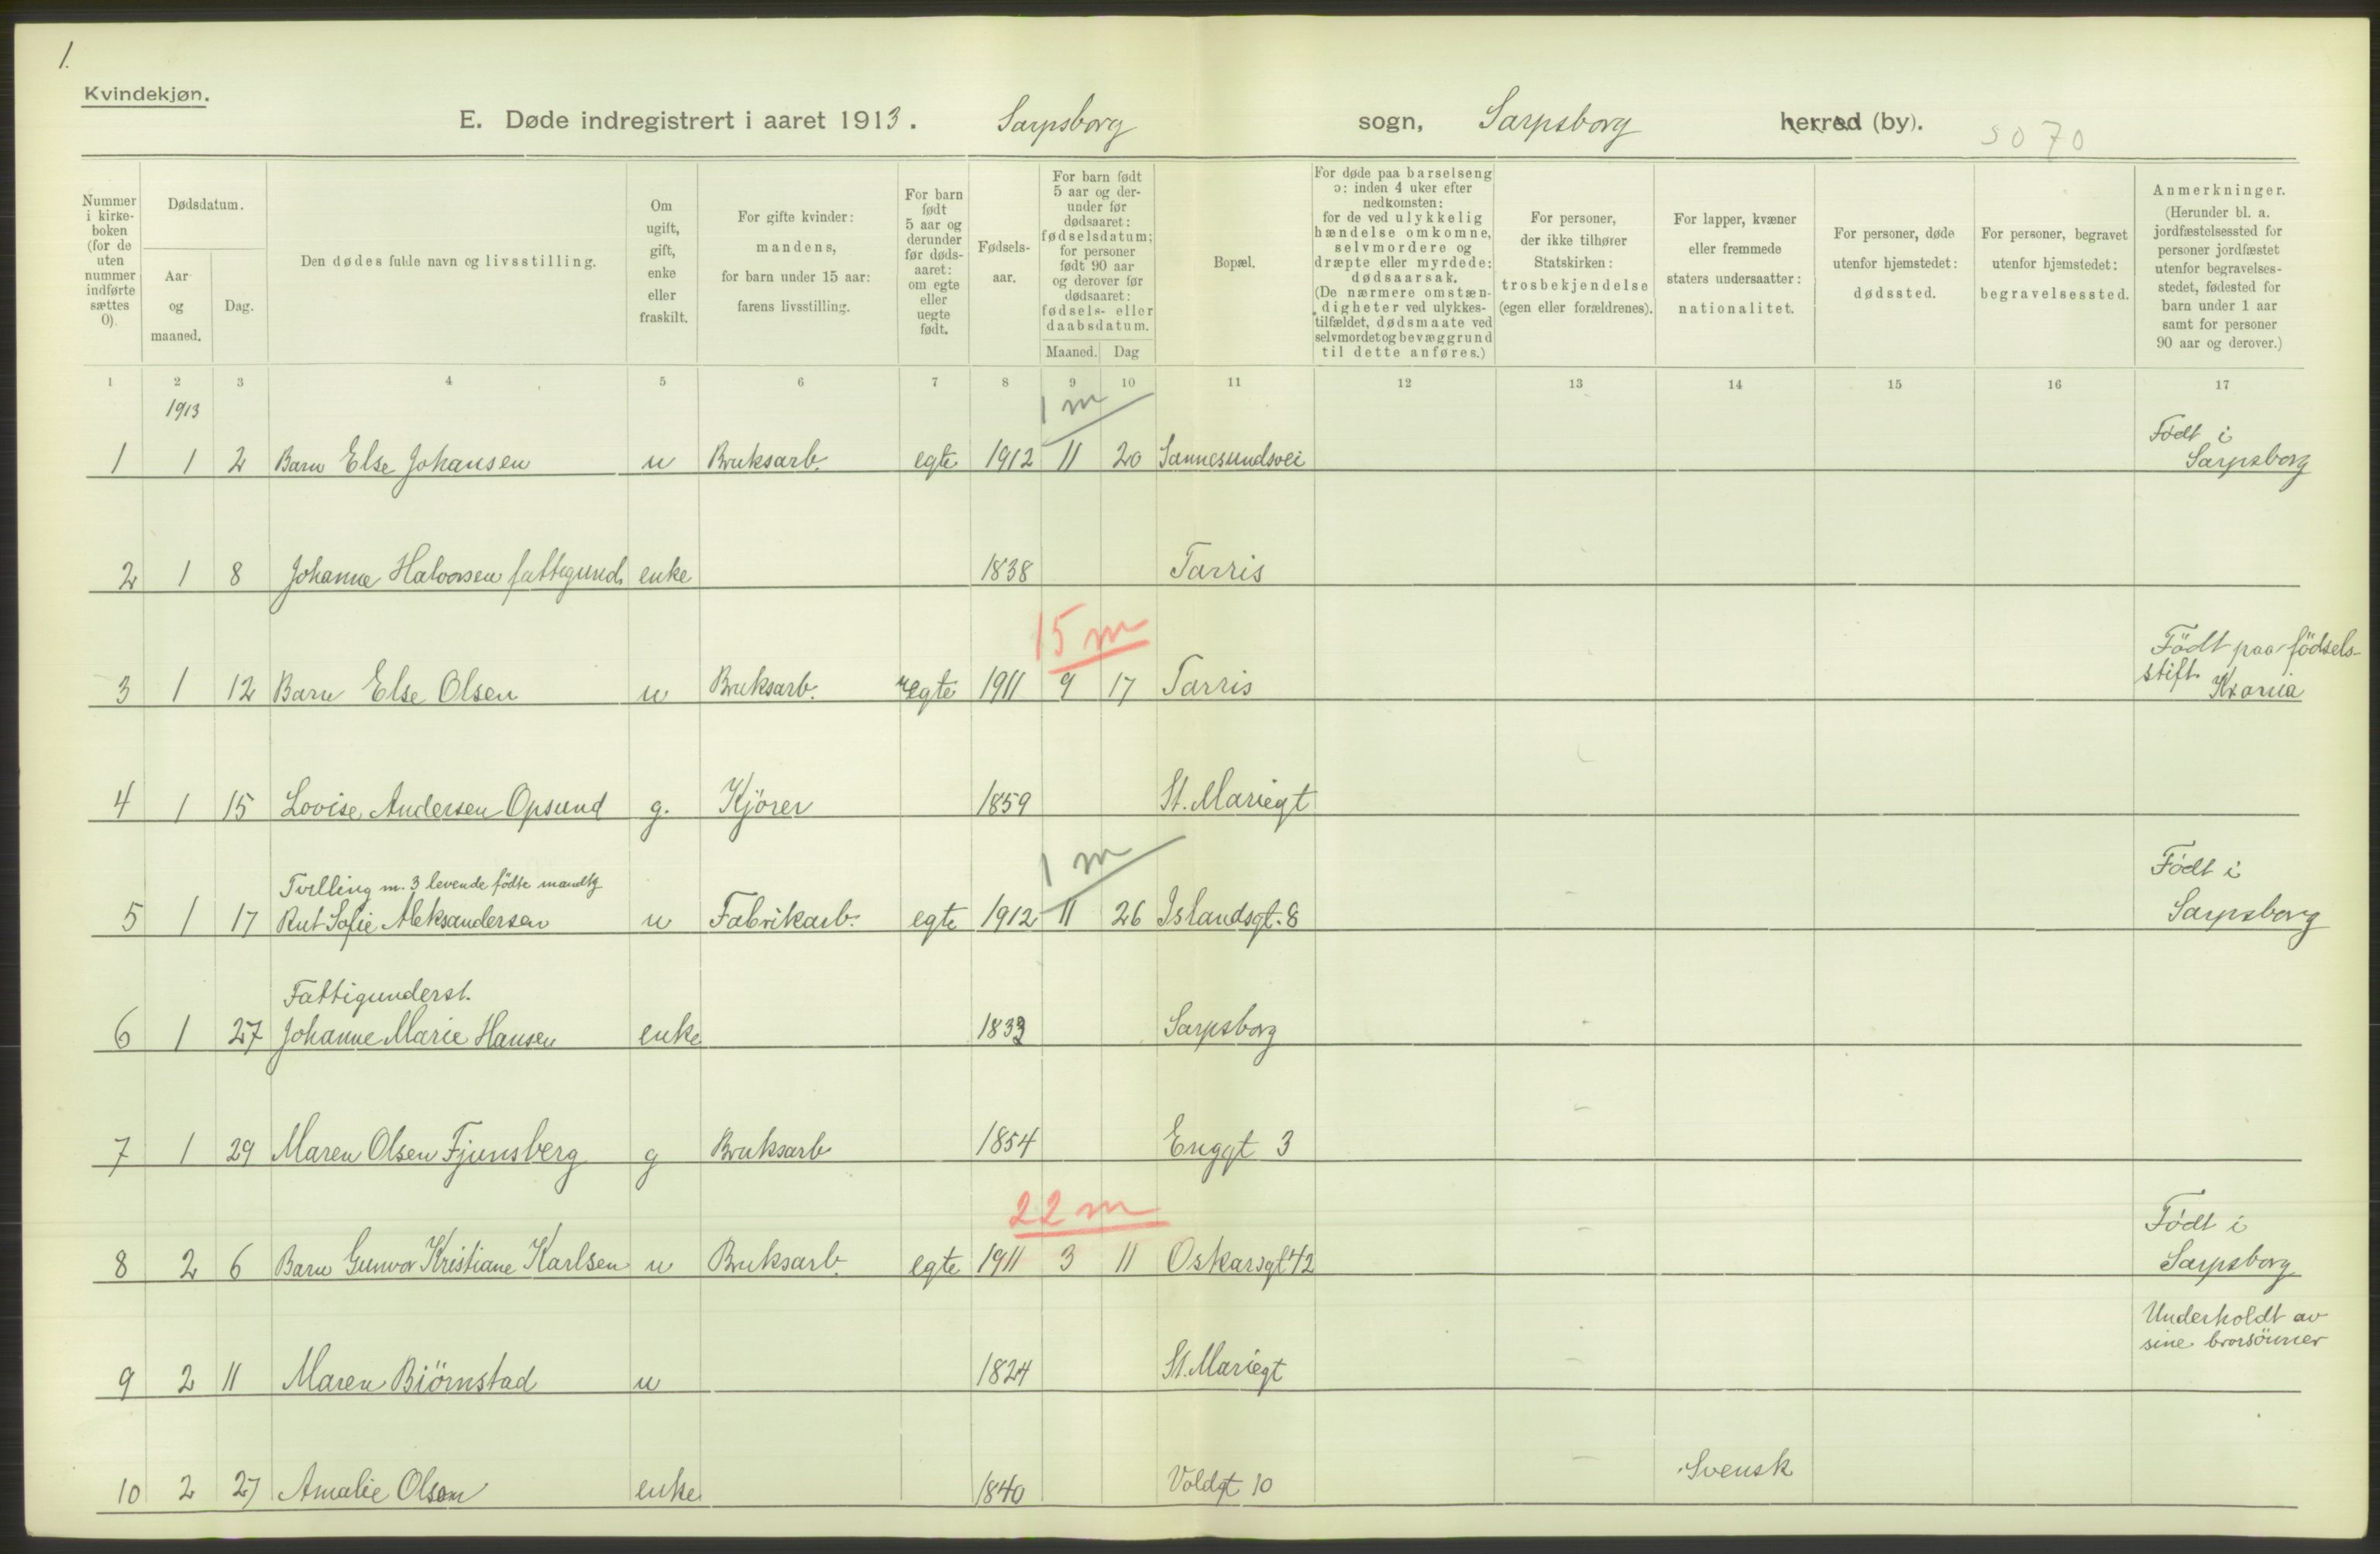 1.
Kvindekjøn.
E. Døde indregistrert i aaret 1913. Sarpsborg sogn, Sarpsborg herred (by).
5070
Nummer i kirkeboken (for de uten nummer indførte sættes 0).
Dødsdatum.
Aar og maaned.
Dag.
Den dødes fulde navn og livsstilling.
Om ugift, gift, enke eller fraskilt.
For gifte kvinder: mandens, for barn under 15 aar: farens livsstilling.
For barn født 5 aar og derunder før dødsaaret: om egte eller uegte født.
Fødselsaar.
For barn født 5 aar og derunder før dødsaaret: fødselsdatum; for personer født 90 aar og derover før dødsaaret: fødsels- eller daabsdatum.
Maaned. Dag
Bopæl.
For døde paa barselseng ɔ: inden 4 uker efter nedkomsten: for de ved ulykkelig hændelse omkomne, selvmordere og dræpte eller myrdede: dødsaarsak. (De nærmere omstændigheter ved ulykkestilfældet, dødsmaate ved selvmordet og bevæggrund til dette anføres.)
For personer, der ikke tilhører Statskirken: trosbekjendelse (egen eller forældrenes).
For lapper, kvæner eller fremmede staters undersaatter: nationalitet.
For personer, døde utenfor hjemstedet: dødssted.
For personer, begravet utenfor hjemstedet: begravelsessted.
Anmerkninger. (Herunder bl. a. jordfæstelsessted for personer jordfæstet utenfor begravelsesstedet, fødested for barn under 1 aar samt for personer 90 aar og derover.)
1 2 3 4 5 6 7 8 9 10 11 12 13 14 15 16 17
1913
1 m
1 1 2 Barn Else Johansen u Bruksarb. egte 1912 11 20 Sannesundsvei Födt i Sarpsborg
2 1 8 Johanne Halvorsen fattigund. enke 1838 Tarris
15 m
3 1 12 Barn Else Olsen u Bruksarb. uegte 1911 9 17 Tarris Födt paa födselsstift. Kr.ania
4 1 15 Lovise Andersen Opsund g. Kjörer 1859 St. Mariegt
1 m
Tvilling m. 3 levende födte mandkj
5 1 17 Rut Sofie Aleksandersen u Fabrikarb. egte 1912 11 26 Islandsgt. 8 Födt i Sarpsborg
Fattigunderst.
6 1 27 Johanne Marie Hansen enke 1833 Sarpsborg
7 1 29 Maren Olsen Fjunsberg g Bruksarb 1854 Enggt 3
22 m
8 2 6 Barn Gunvor Kristiane Karlsen u Bruksarb. egte 1911 3 11 Oskarsgt 42 Födt i Sarpsborg
9 2 11 Maren Biörnstad u 1824 St. Mariegt Underholdt av sine brorsönner
10 2 27 Amalie Olsen enke 1840 Voldgt 10 Svensk